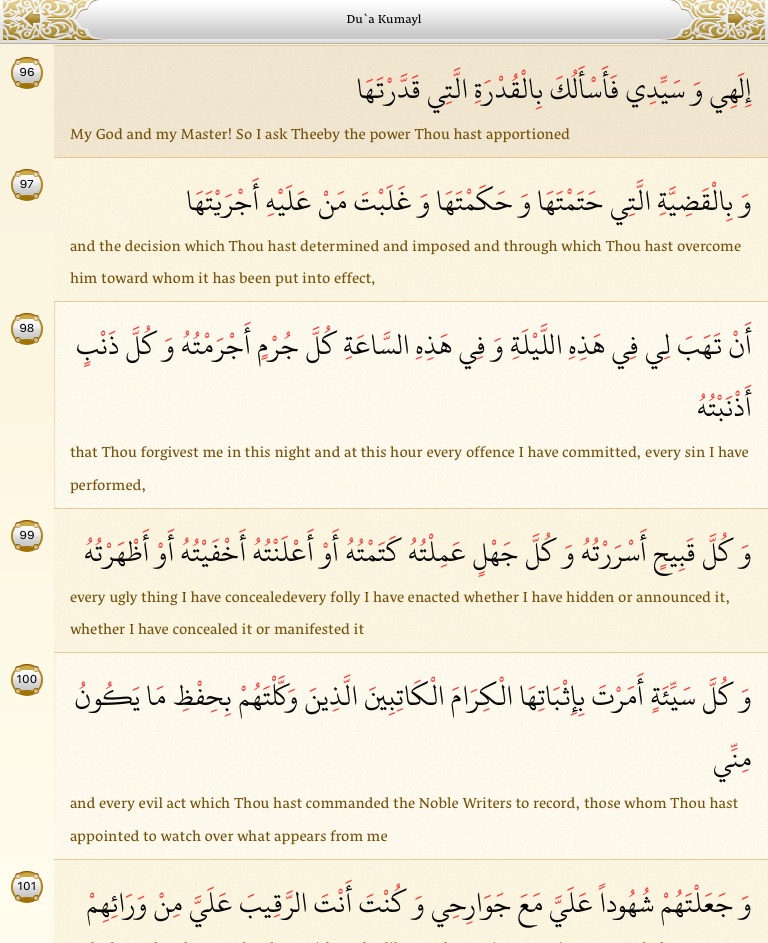 Du`a Kumayl
96
إِلَهِي وَ سَيِّدِي فَأَسْأَلُكَ بِالْقُدْرَةِ الَّتِي قَدَّرْتَهَا
My God and my Master! So I ask Theeby the power Thou hast apportioned
97
وَ بِالْقَضِيَّةِ الَّتِي حَتَمْتَهَا وَ حَكَمْتَهَا وَ غَلَبْتَ مَنْ عَلَيْهِ أَجْرَيْتَهَا
and the decision which Thou hast determined and imposed and through which Thou hast overcome
him toward whom it has been put into effect,
98
أَنْ تَهَبَ لِي فِي هَذِهِ اللَّيْلَةِ وَ فِي هَذِهِ السَّاعَةِ كُلَّ جُرْمٍ أَجْرَمْتُهُ وَ كُلَّ ذَنْبٍ
أَذْنَبْتُهُ
that Thou forgivest me in this night and at this hour every offence I have committed, every sin I have
performed,
99
وَ كُلَّ قَبِيحٍ أَسْرَرْتُهُ وَ كُلَّ جَهْلٍ عَمِلْتُهُ كَتَمْتُهُ أَوْ أَعْلَنْتُهُ أَخْفَيْتُهُ أَوْ أَظْهَرْتُهُ
every ugly thing I have concealedevery folly I have enacted whether I have hidden or announced it,
whether I have concealed it or manifested it
100
وَ كُلَّ سَيِّئَةٍ أَمَرْتَ بِإِثْبَاتِهَا الْكِرَامَ الْكَاتِبِينَ الَّذِينَ وَكَّلْتَهُمْ بِحِفْظِ مَا يَكُونُ
مِنِّي
and every evil act which Thou hast commanded the Noble Writers to record, those whom Thou hast
appointed to watch over what appears from me
101
وَ جَعَلْتَهُمْ شُهُوداً عَلَيَّ مَعَ جَوَارِحِي وَ كُنْتَ أَنْتَ الرَّقِيبَ عَلَيَّ مِنْ وَرَائِهِمْ